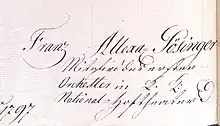 Franz Alexa Götinger
Mitglied des ersten
Orchesters in K. K.
National-Hoftheater
1797